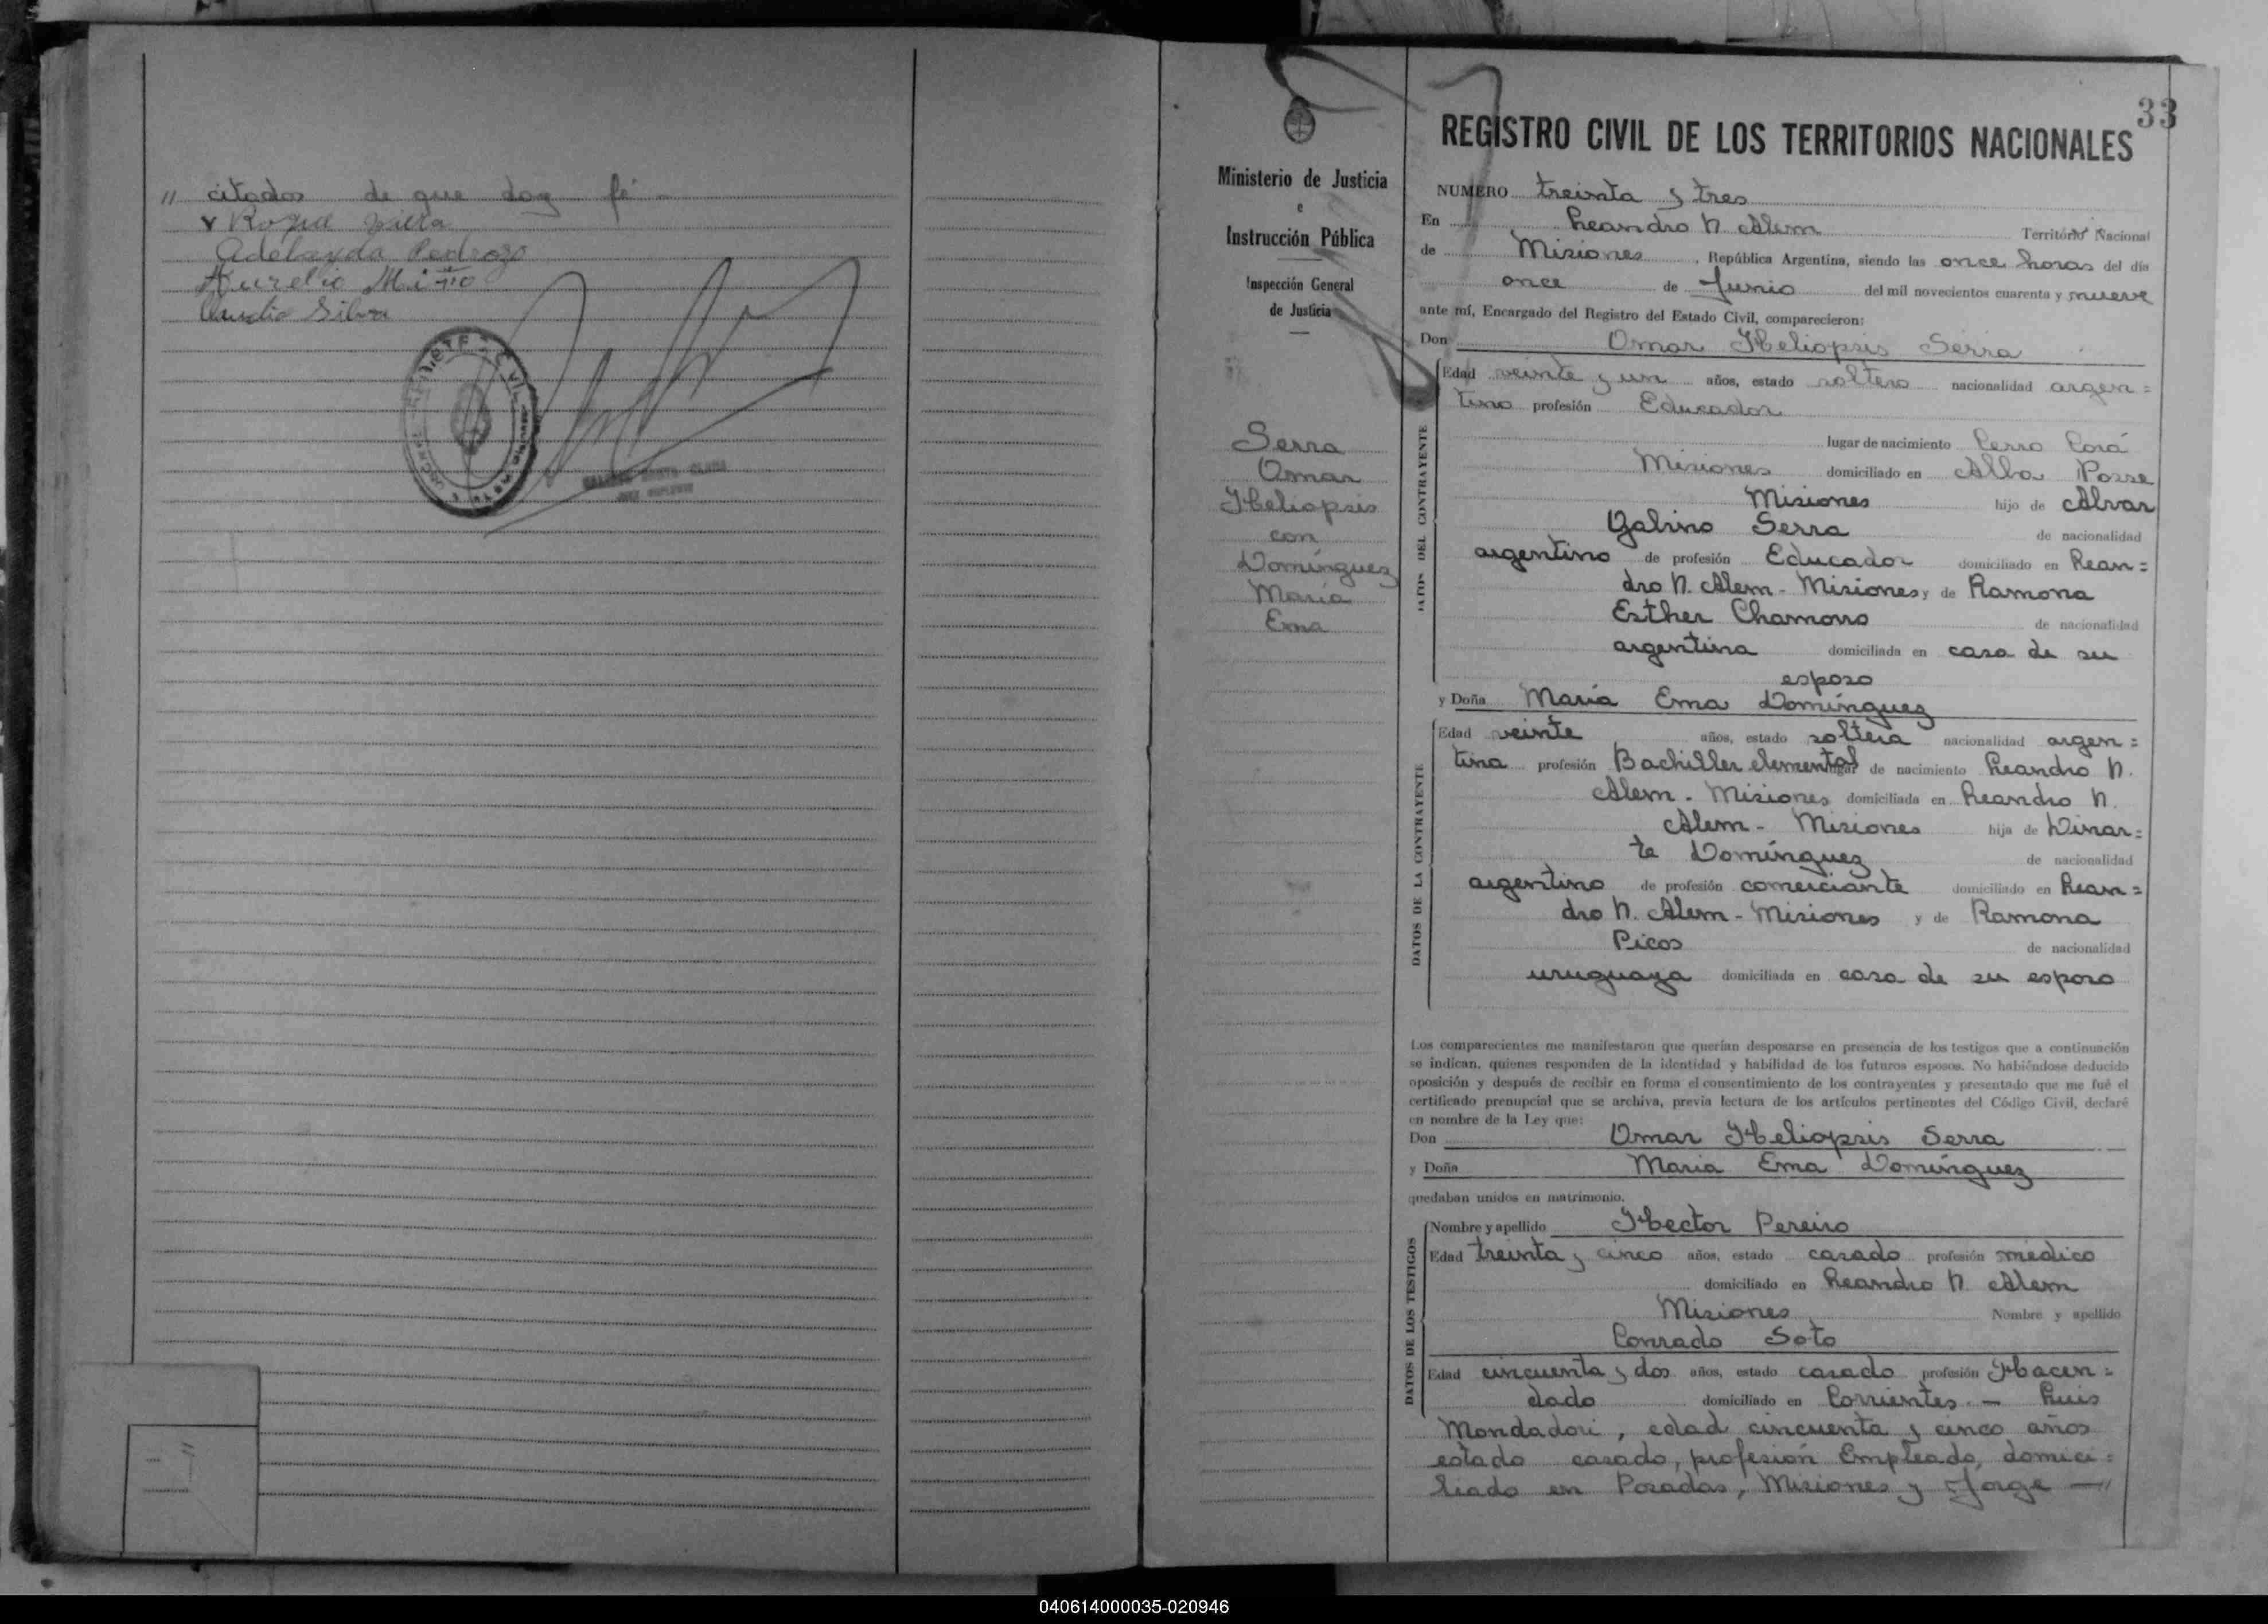 " citados de que doy fé -
Roque
Adelayda Pedrozo
Aurelio
Silva
33
Ministerio de Justicia
e
Instrucción Pública
Inspección General
de Justicia
Serra
Omar
Heliopsis
con
Domínguez
María
Ema
REGISTRO CIVIL DE LOS TERRITORIOS NACIONALES
NUMERO treinta y tres
En Leandro N. Alem Territorio Nacional
de Misiones, República Argentina, siendo las once horas del día
once de Junio del mil novecientos cuarenta y nueve
ante mí, Encargado del Registro del Estado Civil, comparecieron:
Don Omar Heliopsis Serra
DATOS DEL CONTRAYENTE
Edad veinte y un años, estado soltero nacionalidad argen=
tino profesión Educador
lugar de nacimiento Cerro Corá
Misiones domiciliado en Alba Posse
Misiones hijo de Alvar
Galino Serra de nacionalidad
argentino de profesión Educador domiciliado en Lean=
dro N. Alem - Misiones y de Ramona
Esther Chamorro de nacionalidad
argentina domiciliada en casa de su
esposo
y Doña María Ema Domínguez
DATOS DE LA CONTRAYENTE
Edad veinte años, estado soltera nacionalidad argen=
tina profesión Bachiller elemental lugar de nacimiento Leandro N.
Alem - Misiones domiciliada en Leandro N.
Alem - Misiones hija de Dinar=
te Domínguez de nacionalidad
argentino de profesión comerciante domiciliado en Lean=
dro N. Alem - Misiones y de Ramona
Picos de nacionalidad
uruguaya domiciliada en casa de su esposo
Los comparecientes me manifestaron que querían desposarse en presencia de los testigos que a continuación
se indican, quienes responden de la identidad y habilidad de los futuros esposos. No habiéndose deducido
oposición y después de recibir en forma el consentimiento de los contrayentes y presentado que me fué el
certificado prenupcial que se archiva, previa lectura de los artículos pertinentes del Código Civil, declaré
en nombre de la Ley que:
Don Omar Heliopsis Serra
y Doña Maria Ema Domínguez
quedaban unidos en matrimonio.
DATOS DE LOS TESTIGOS
Nombre y apellido Hector Pereiro
Edad treinta y cinco años, estado casado profesión médico
domiciliado en Leandro N. Alem
Misiones Nombre y apellido
Conrado Soto
Edad cincuenta y dos años, estado casado profesión Hacen=
dado domiciliado en Corrientes. - Luis
Mondadori, edad cincuenta y cinco años
estado casado, profesión Empleado, domici=
liado en Posadas, Misiones y Jorge —"
040614000035-020946